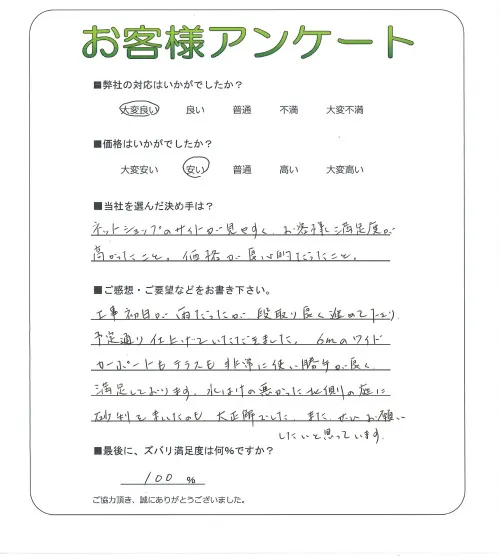 お客様アンケート
■弊社の対応はいかがでしたか？
大変良い 良い 普通 不満 大変不満
■価格はいかがでしたか？
大変安い 安い 普通 高い 大変高い
■当社を選んだ決め手は？
ネットショップのサイトが見やすく、お客様満足度が
高かったこと。価格が良心的だったこと。
■ご感想・ご要望などをお書き下さい。
工事初日が雨だったが段取り良く進めて下さり
予定通り仕上げていただきました。6mのワイド
カーポートもテラスも非常に使い勝手が良く
満足しております。水はけの悪かった北側の庭に
砂利をまいたのも大正解でした。また、ぜひお願い
したいと思っています。
■最後に、ズバリ満足度は何%ですか？
100 %
ご協力頂き、誠にありがとうございました。